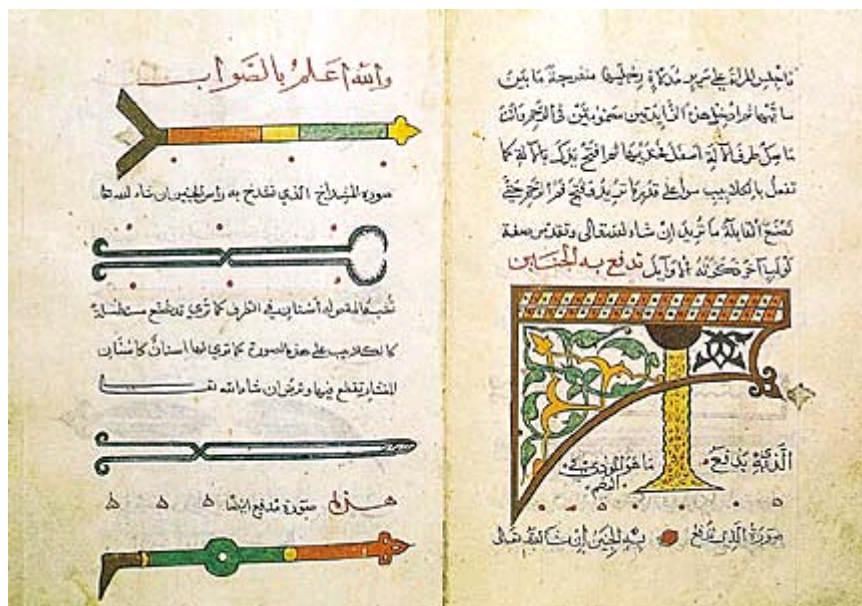 فاجلس المراة على سرير مدلاة رجليها منفرجة ما بين
ساقيها ثم ادخل هذه الزايدتين مضمومتين في الرحم وانت
ماسك طرف الآلة اسفل فخذيها ثم افتح يدك بالآلة كما
تفعل بالكلاليب سوا على قدر ما تريد فتح فم الرحم حتى
تصنع القابلة ما تريد ان شاء الله تعالى وتقدم صفة
لولب آخر ذكرته الاوايل تدفع به الجنين
الذي يدفع ما هو في
الفم
صورة الذي تدفع به الجنين ان شا الله تعالى
والله اعلم بالصواب
صورة المشداخ الذي تشدخ به راس الجنين ان شاء الله تعا
تشبه المقص له أسنان في الطرف كما ترى قد تصنع مستطيلة
كالكلاليب على هذه الصورة كما ترى لها اسنان كاسنان
المنشار تقطع فيها وترض ان شاء الله
هذه صورة مدفع ايضا